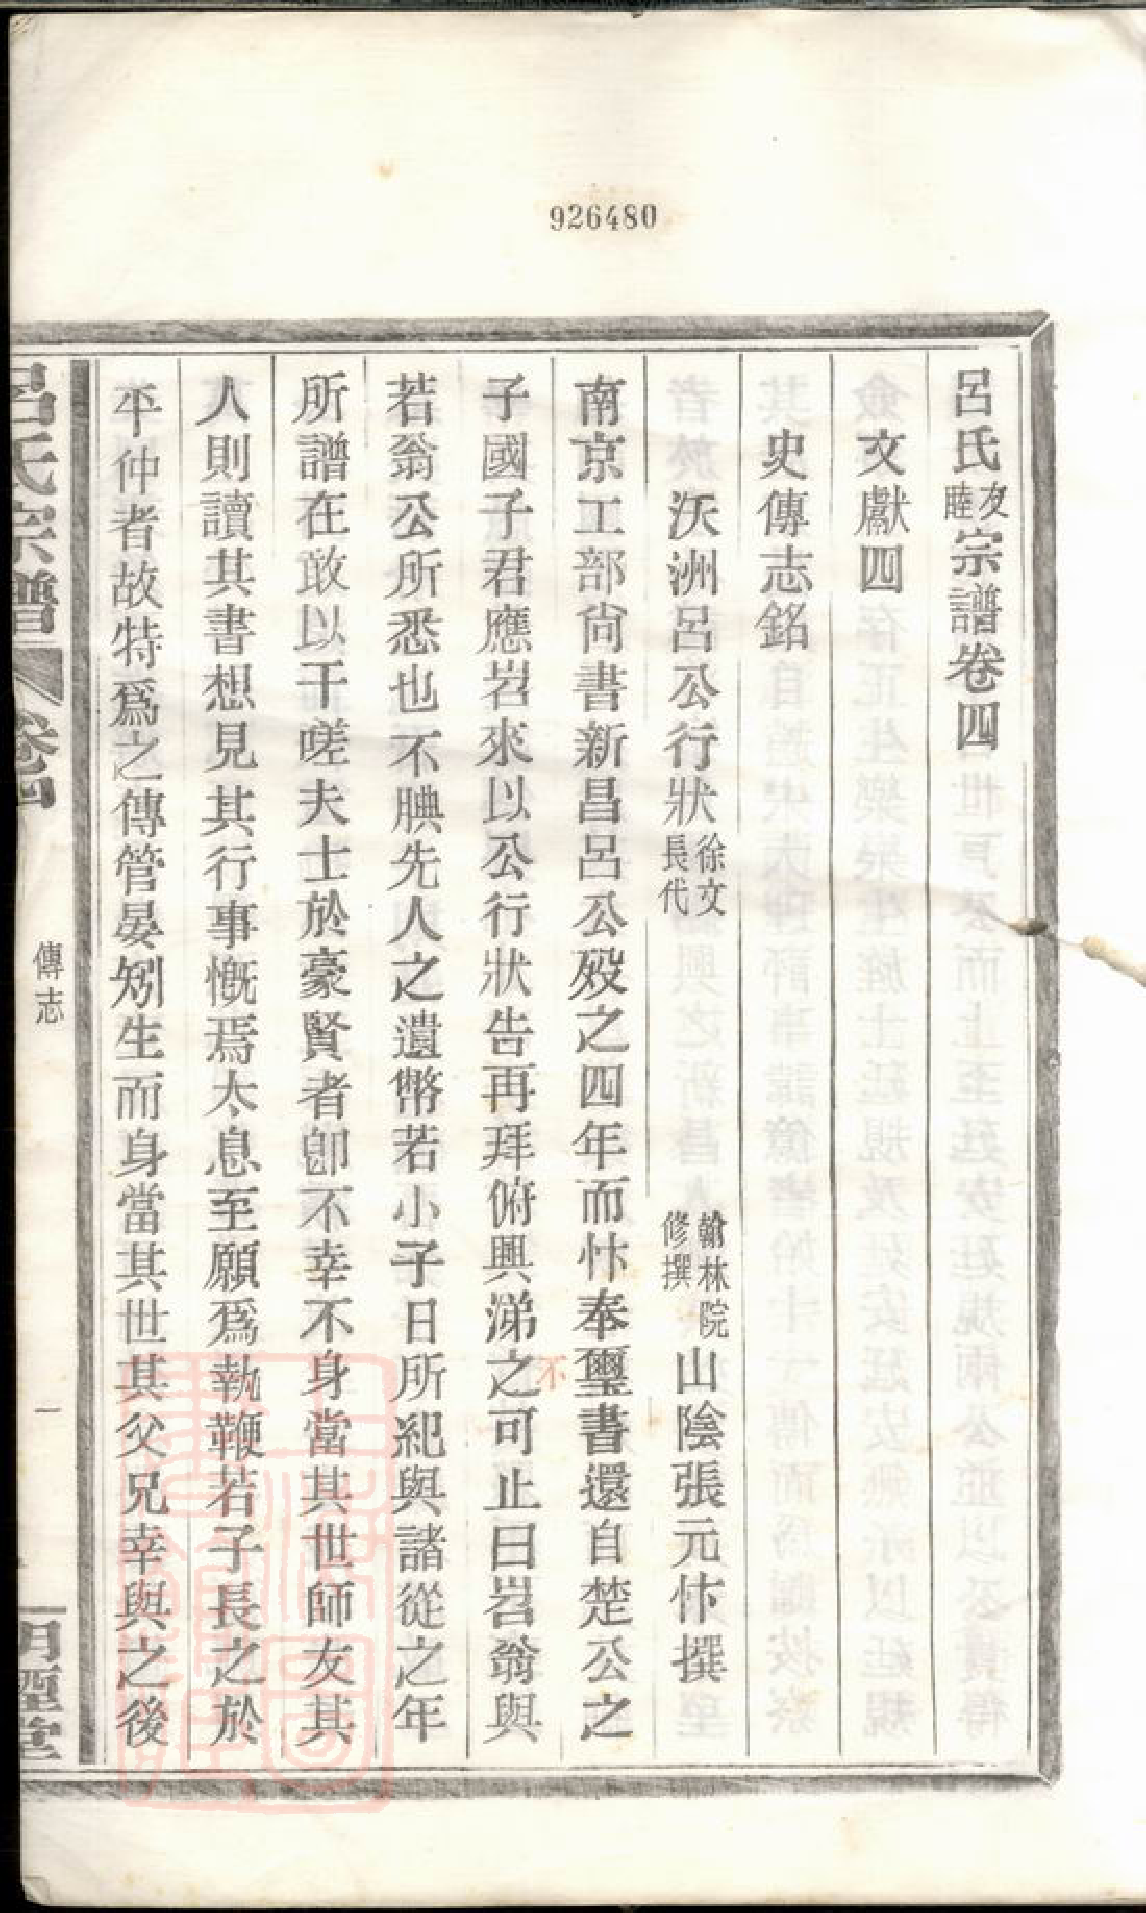 926480
呂氏友睦宗譜卷四
文獻四
史傳志銘
沃洲呂公行狀徐文長代翰林院修撰山陰張元忭撰
南京工部尚書新昌呂公歿之四年而忭奉璽書還自楚公之
子國子君應岩來以公行狀告再拜俯興涕之可止曰岩翁與
不
若翁公所悉也不腆先人之遺幣若小子日所紀與諸從之年
所譜在敢以干嗟夫士於豪賢者卽不幸不身當其世師友其
人則讀其書想見其行事慨焉太息至願爲執鞭若子長之於
平仲者故特爲之傳管晏矧生而身當其世其父兄幸與之後
呂氏宗譜
卷四
傳志
一
明煙堂